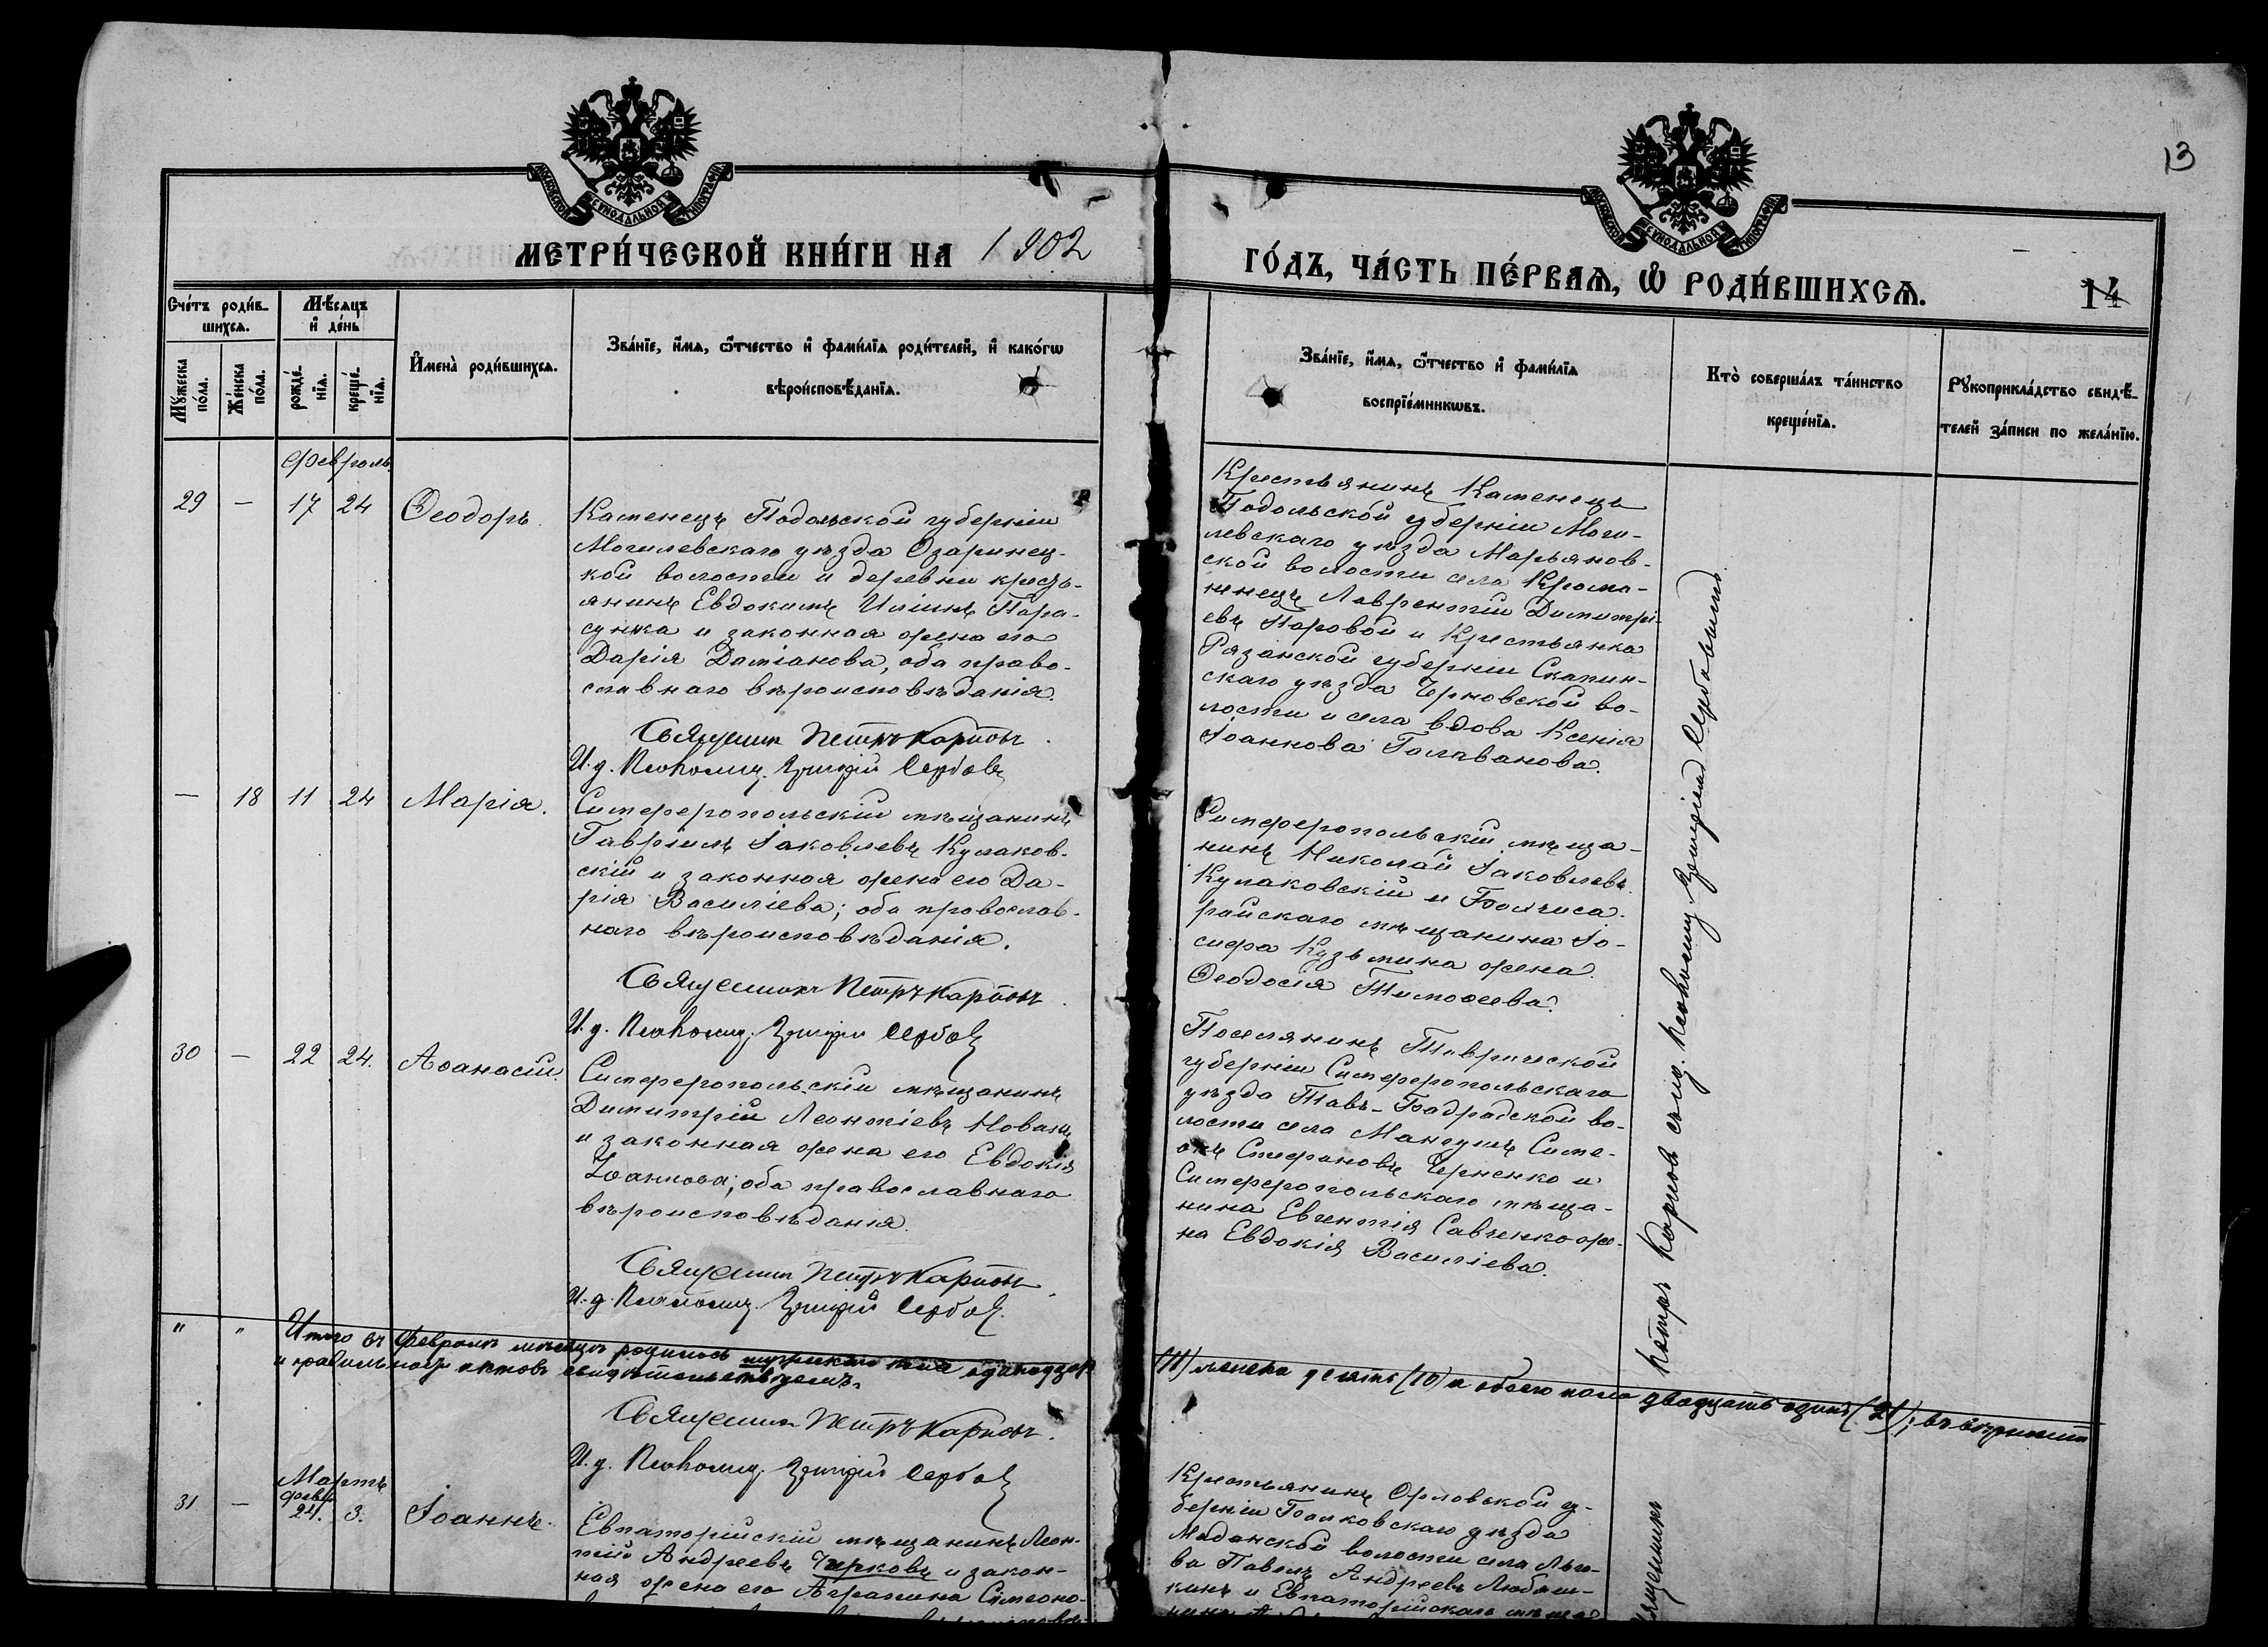 13
МОСКОВСКОЙ СУНОДАЛЬНОЙ ТИПОГРАФІИ
МОСКОВСКОЙ СУНОДАЛЬНОЙ ТИПОГРАФІИ
МЕТРИ́ЧЕСКОЙ КНИ́ГИ НА 1902
ГО́ДЪ, ЧА́СТЬ ПЕ́РВАѦ, Ѡ РОДИ́ВШИХСѦ.
14
Сче́тъ роди́в-
шихсѧ.
Мѣ́сѧцъ
и҆ де́нь
Мꙋ́жеска
по́ла.
Же́нска
по́ла.
рожде́-
нїѧ.
креще́-
нїѧ.
И҆мена̀ роди́вшихсѧ.
Зва́нїе, и҆́мѧ, ѻ҆́тчество и҆ фами́лїѧ роди́телей, и҆ како́гѡ
вѣроисповѣ́данїѧ.
Зва́нїе, и҆́мѧ, ѻ҆́тчество и҆ фами́лїѧ
воспрїе́мникѡвъ.
Кто̀ соверша́лъ та́инство
креще́нїѧ.
Рꙋкоприкла́дство свидѣ́-
телей за́писи по жела́нїю.
Февраль
29 — 17 24 Ѳеодоръ.
Каменецъ Подольской губерніи
Могилевскаго уѣзда Озаринец-
кой волости и деревни кресть-
янинъ Евдокимъ Иліинъ Пара-
сунка и законная жена его
Дарія Даміанова, оба право-
славнаго вѣроисповѣданія.
Священникъ Петръ Карповъ.
И. д. Псаломщ. Григорій Сербовъ
Крестьянинъ Каменецъ
Подольской губерніи Моги-
левскаго уѣзда Марьянов-
ской волости села
Лаврентій Димитрі-
евъ Паровой и Крестьянка
Рязанской губерніи Скопин-
скаго уѣзда Черновской во-
лости и села вдова Ксенія
Іоаннова Голованова.
— 18 11 24 Марія.
Симферопольскій мѣщанинъ
Гавріилъ Іаковлевъ Кулаков-
скій и законная жена его Да-
рія Василіева; оба православ-
наго вѣроисповѣданія.
Священникъ Петръ Карповъ.
И. д. Псаломщ. Григорій Сербовъ
Симферопольскій мѣща-
нинъ Николай Іаковлевъ
Кулаковскій и Бахчиса-
райскаго мѣщанина Іо-
сифа Кузьмина жена
Ѳеодосія Тимоѳеева.
30 — 22 24. Аѳанасій.
Симферопольскій мѣщанинъ
Димитрій Леонтіевъ
и законная жена его Евдокія
Іоаннова; оба православнаго
вѣроисповѣданія.
Священникъ Петръ Карповъ.
И. д. Псаломщ. Григорій Сербовъ.
Поселянинъ Таврической
губерніи Симферопольскаго
уѣзда Тавъ-Бадракской во-
лости села Мангушъ Симе-
онъ Стефановъ Черненко и
Симферопольскаго мѣща-
нина Евгентія Савченко же-
на Евдокія Василіева.
" " Итого въ Февралѣ мѣсяцѣ родилось мужескаго пола одинадцать
(11) женска десять (10) а обоего пола двадцать одинъ (21); въ вѣрности
и правильности актовъ свидѣтельствуемъ.
Священникъ Петръ Карповъ.
И. д. Псаломщ. Григорій Сербовъ
Мартъ
февр.
31 — 24. 3. Іоаннъ.
Евпаторійскій мѣщанинъ Леон-
тій Андреевъ Чирковъ и закон-
ная жена его Агрипина Симеоно-
Крестьянинъ Орловской гу-
берніи Болховскаго уѣзда
волости села Льго-
ва Павелъ Андреевъ
и Евпаторійскаго
Священникъ Петръ Карповъ съ и.д. псаломщ. Григоріемъ Сербовымъ.